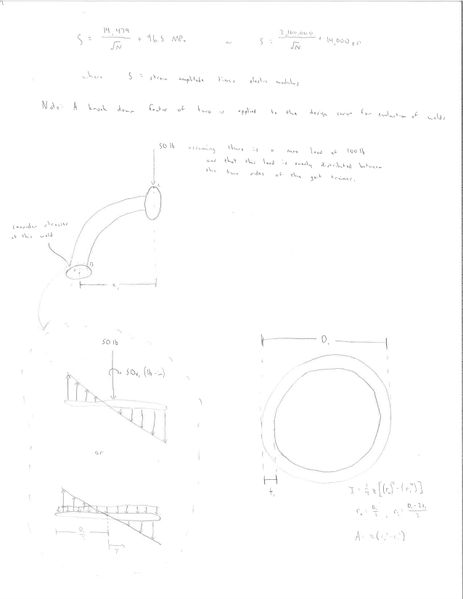 S = 14,479/√N + 96.5 MPa or S = 2,100,000/√N + 14,000 psi
where S = strain amplitude times elastic modulus
Note: A knock down factor of two is applied to the design curve for evaluation of welds
50 lb assuming there is a max load of 100 lb
and that this load is evenly distributed between
the two sides of the gait trainer.
consider stresses
at this weld
x₁
D₁
50 lb
50x₁ (lb-in)
or
D₁/2
y
t₁
I = ¼π[(r₀)⁴-(r₁)⁴]
r₀ = D₁/2, r₁ = D₁-2t₁/2
A = π(r₀²-r₁²)